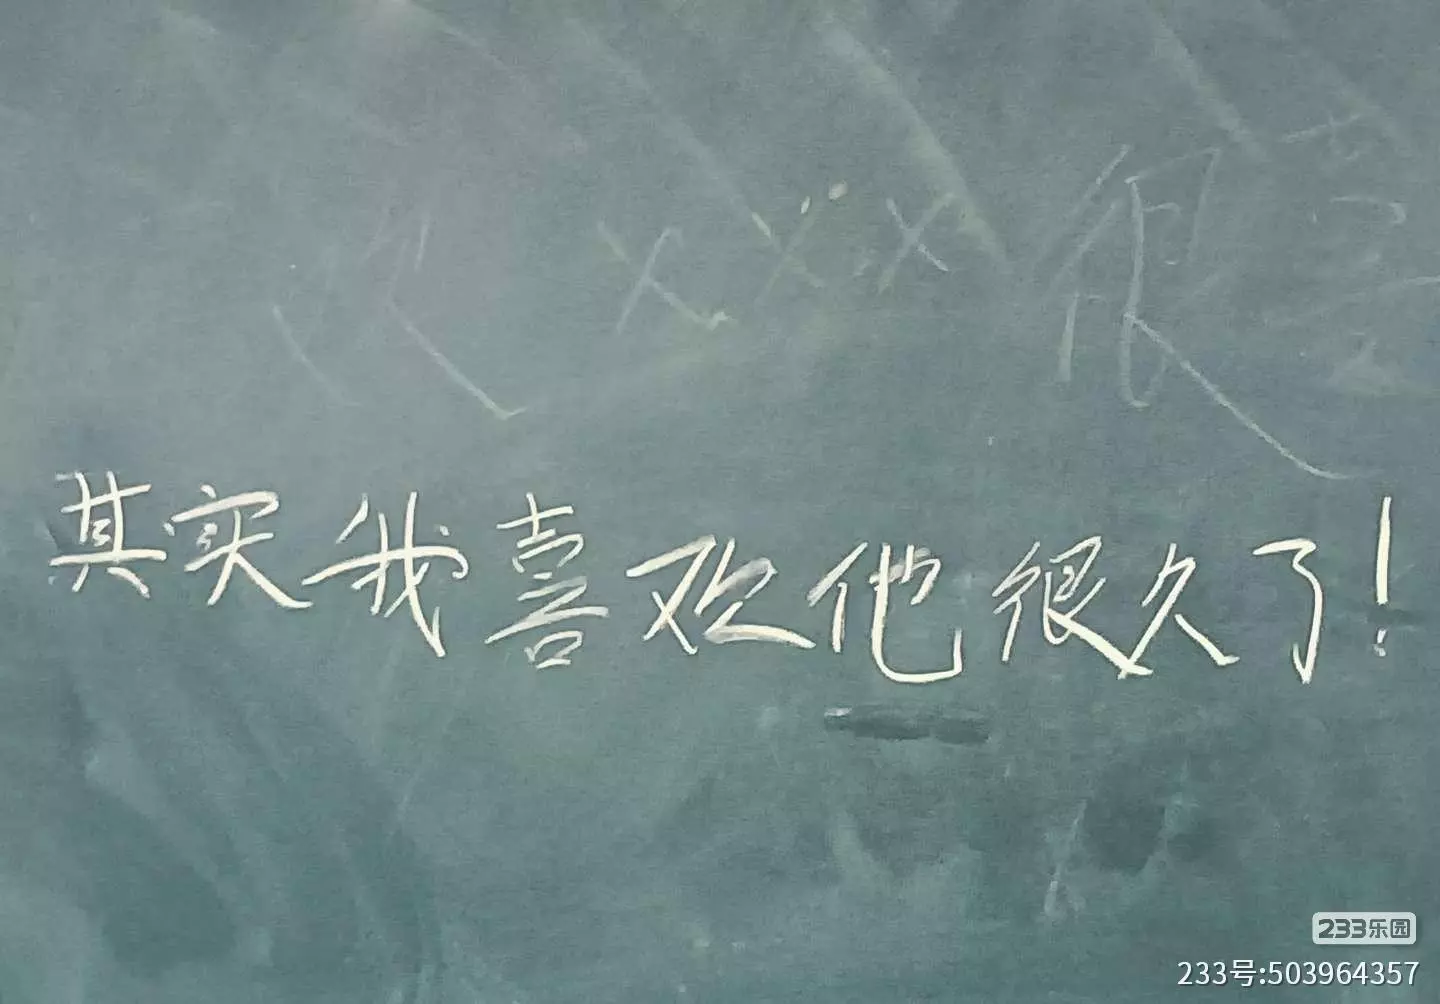 xxx很
其实我喜欢他很久了!
233乐园
233号:503964357